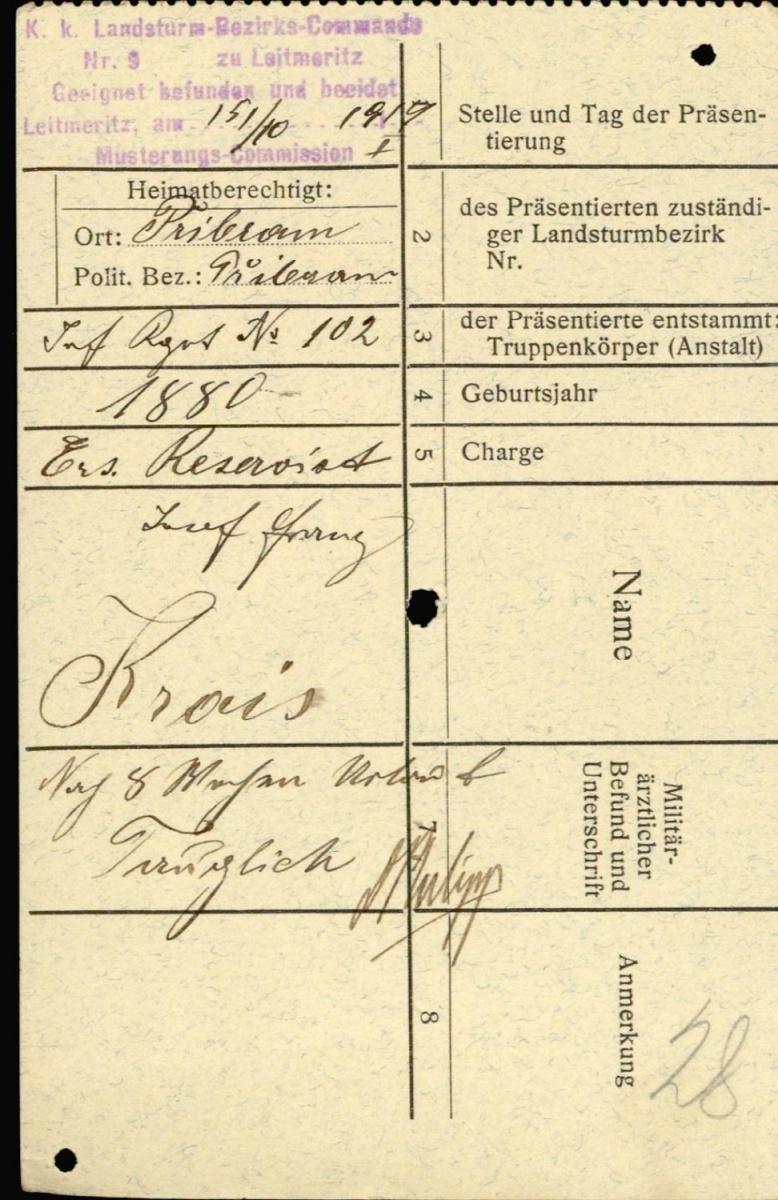 K. k. Landsturm-Bezirks-Commando
Nr. 9 zu Leitmeritz
Geeignet befunden und beeidet
Leitmeritz, am 15/10 1917
Musterungs-Commission
Stelle und Tag der Präsen-
tierung
Heimatberechtigt:
Ort: Přibram
Polit. Bez.: Přibram
2
des Präsentierten zuständi-
ger Landsturmbezirk
Nr.
Inf Rgnt No 102
3
der Präsentierte entstammt:
Truppenkörper (Anstalt)
1880
4
Geburtsjahr
Ers. Reservist
5
Charge
Josef Franz
Krais
Name
Nach 8 Wochen Urlaub
Tauglich
7
Militär-
ärztlicher
Befund und
Unterschrift
8
Anmerkung
28